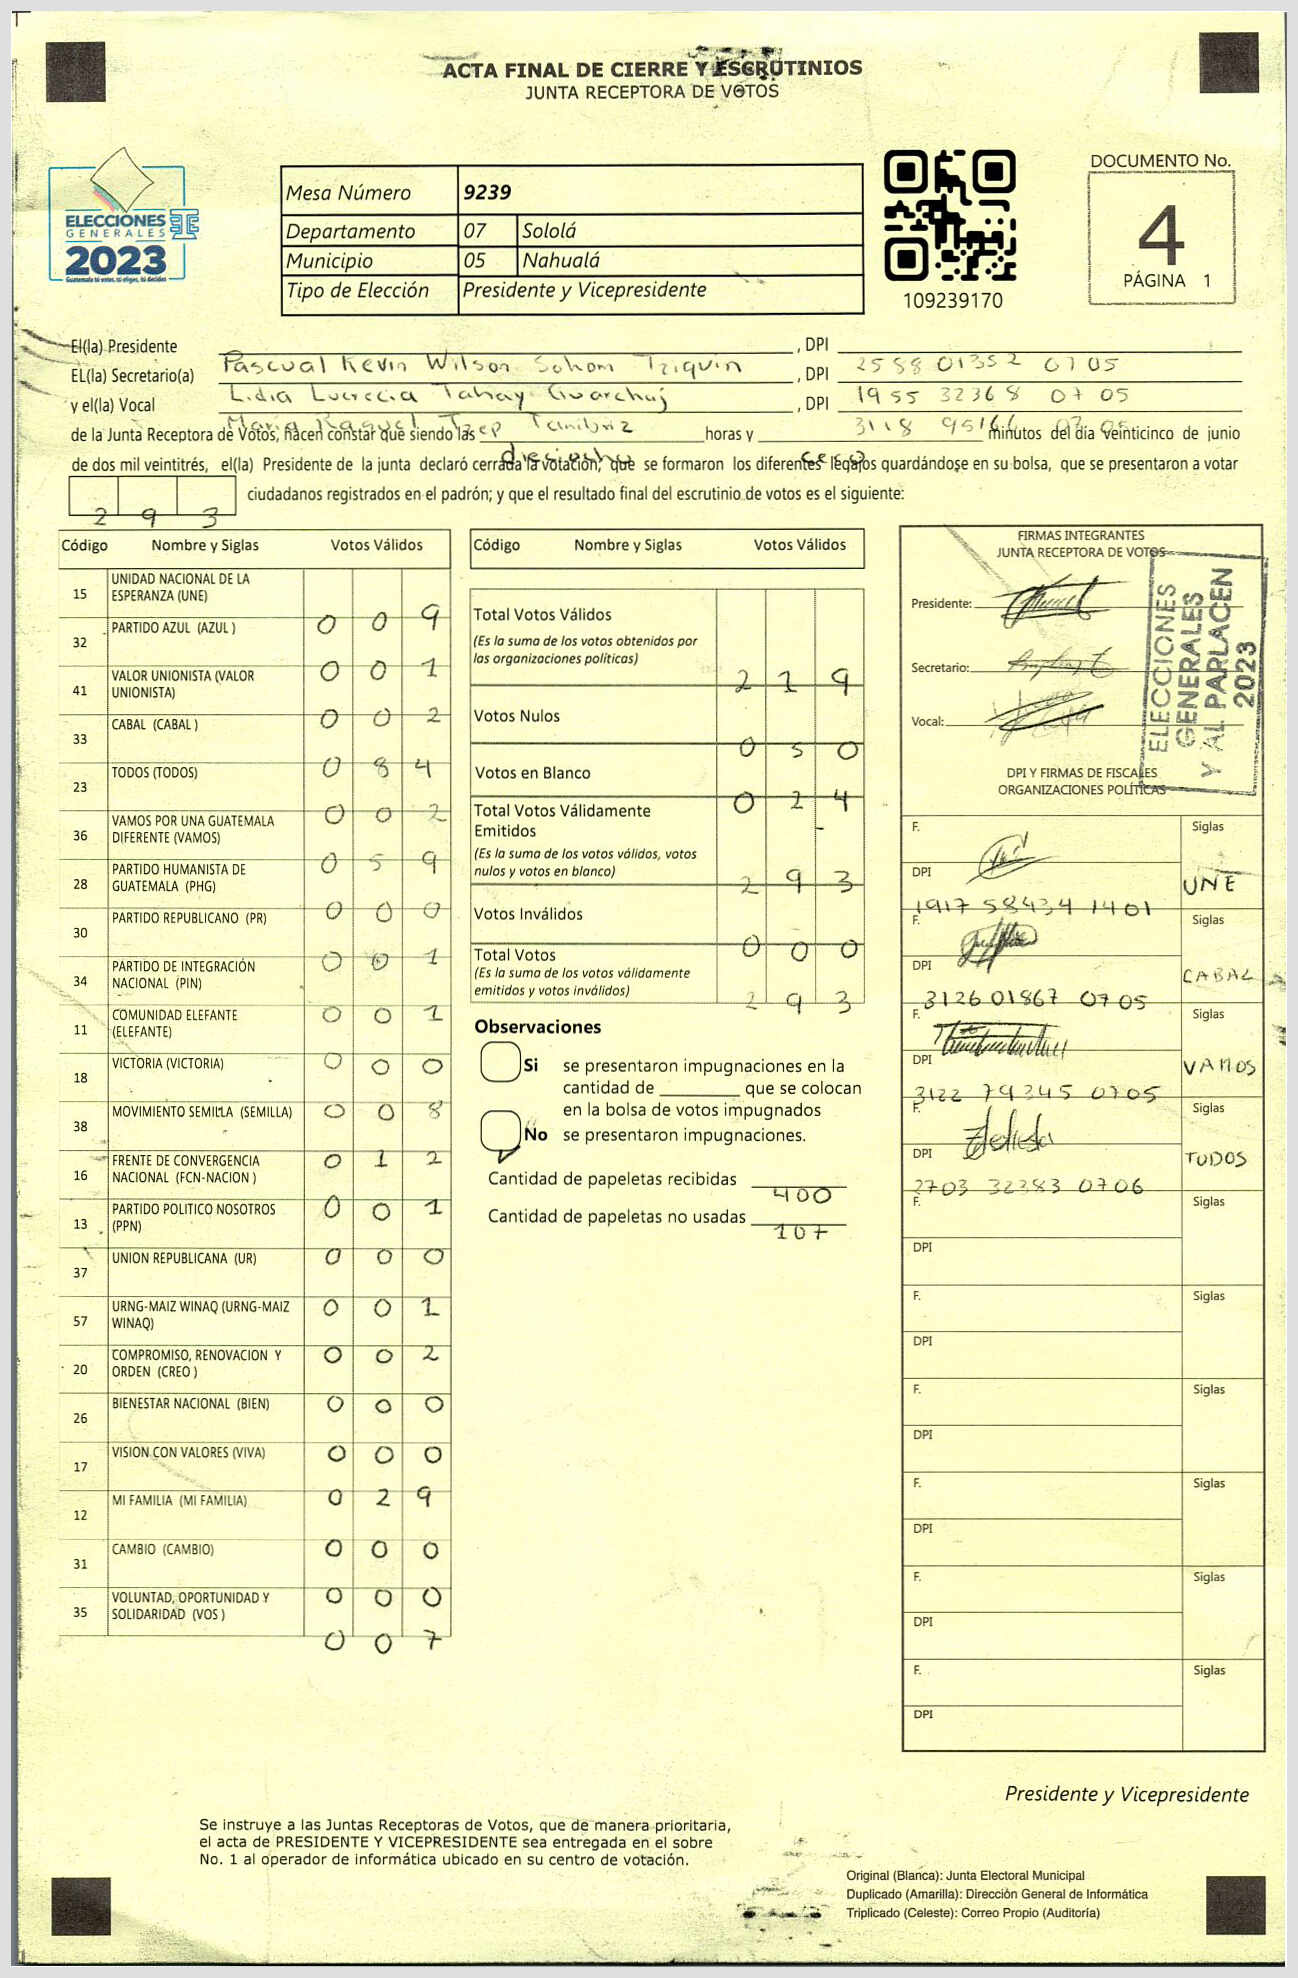 ACTA FINAL DE CIERRE Y ESCRUTINIOS
JUNTA RECEPTORA DE VOTOS
ELECCIONES
GENERALES
2023
Guatemala tú votas, tú eliges, tú decides
Mesa Número 9239
Departamento 07 Sololá
Municipio 05 Nahualá
Tipo de Elección Presidente y Vicepresidente
109239170
DOCUMENTO No.
4
PÁGINA 1
El(la) Presidente Pascual Kevin Wilson Sohom Tziquin, DPI 2588 01352 0705
EL(la) Secretario(a) Lidia Lucrecia Tahay Guarchaj, DPI 1955 32368 0705
y el(la) Vocal María Raquel Tzep, DPI 3118 0705
de la Junta Receptora de Votos, hacen constar que siendo las dieciocho horas y cero minutos del día veinticinco de junio
de dos mil veintitrés, el(la) Presidente de la junta declaró cerrada la votación, que se formaron los diferentes legajos guardándose en su bolsa, que se presentaron a votar
293 ciudadanos registrados en el padrón; y que el resultado final del escrutinio de votos es el siguiente:
Código Nombre y Siglas Votos Válidos
15 UNIDAD NACIONAL DE LA ESPERANZA (UNE) 0 0 9
32 PARTIDO AZUL (AZUL ) 0 0 1
41 VALOR UNIONISTA (VALOR UNIONISTA) 0 0 2
33 CABAL (CABAL ) 0 8 4
23 TODOS (TODOS) 0 0 2
36 VAMOS POR UNA GUATEMALA DIFERENTE (VAMOS) 0 5 9
28 PARTIDO HUMANISTA DE GUATEMALA (PHG) 0 0 0
30 PARTIDO REPUBLICANO (PR) 0 0 1
34 PARTIDO DE INTEGRACIÓN NACIONAL (PIN) 0 0 1
11 COMUNIDAD ELEFANTE (ELEFANTE) 0 0 0
18 VICTORIA (VICTORIA) 0 0 8
38 MOVIMIENTO SEMILLA (SEMILLA) 0 1 2
16 FRENTE DE CONVERGENCIA NACIONAL (FCN-NACION ) 0 0 1
13 PARTIDO POLITICO NOSOTROS (PPN) 0 0 0
37 UNION REPUBLICANA (UR) 0 0 1
57 URNG-MAIZ WINAQ (URNG-MAIZ WINAQ) 0 0 2
20 COMPROMISO, RENOVACION Y ORDEN (CREO ) 0 0 0
26 BIENESTAR NACIONAL (BIEN) 0 0 0
17 VISION CON VALORES (VIVA) 0 2 9
12 MI FAMILIA (MI FAMILIA) 0 0 0
31 CAMBIO (CAMBIO) 0 0 0
35 VOLUNTAD, OPORTUNIDAD Y SOLIDARIDAD (VOS ) 0 0 7
Código Nombre y Siglas Votos Válidos
Total Votos Válidos 2 1 9
(Es la suma de los votos obtenidos por
las organizaciones políticas)
Votos Nulos 0 5 0
Votos en Blanco 0 2 4
Total Votos Válidamente
Emitidos 2 9 3
(Es la suma de los votos válidos, votos
nulos y votos en blanco)
Votos Inválidos 0 0 0
Total Votos 2 9 3
(Es la suma de los votos válidamente
emitidos y votos inválidos)
Observaciones
Si se presentaron impugnaciones en la
cantidad de ________ que se colocan
en la bolsa de votos impugnados
No se presentaron impugnaciones.
Cantidad de papeletas recibidas 400
Cantidad de papeletas no usadas 107
FIRMAS INTEGRANTES
JUNTA RECEPTORA DE VOTOS
Presidente:
Secretario:
Vocal:
ELECCIONES
GENERALES
Y AL PARLACEN
2023
DPI Y FIRMAS DE FISCALES
ORGANIZACIONES POLÍTICAS
F. Siglas
DPI 1917 58434 1401 UNE
F. Siglas
DPI 3126 01867 0705 CABAL
F. Siglas
DPI 3122 79345 0705 VAMOS
F. Siglas
DPI 2703 32383 0706 TODOS
F. Siglas
DPI
F. Siglas
DPI
F. Siglas
DPI
F. Siglas
DPI
F. Siglas
DPI
F. Siglas
DPI
Presidente y Vicepresidente
Se instruye a las Juntas Receptoras de Votos, que de manera prioritaria,
el acta de PRESIDENTE Y VICEPRESIDENTE sea entregada en el sobre
No. 1 al operador de informática ubicado en su centro de votación.
Original (Blanca): Junta Electoral Municipal
Duplicado (Amarilla): Dirección General de Informática
Triplicado (Celeste): Correo Propio (Auditoría)